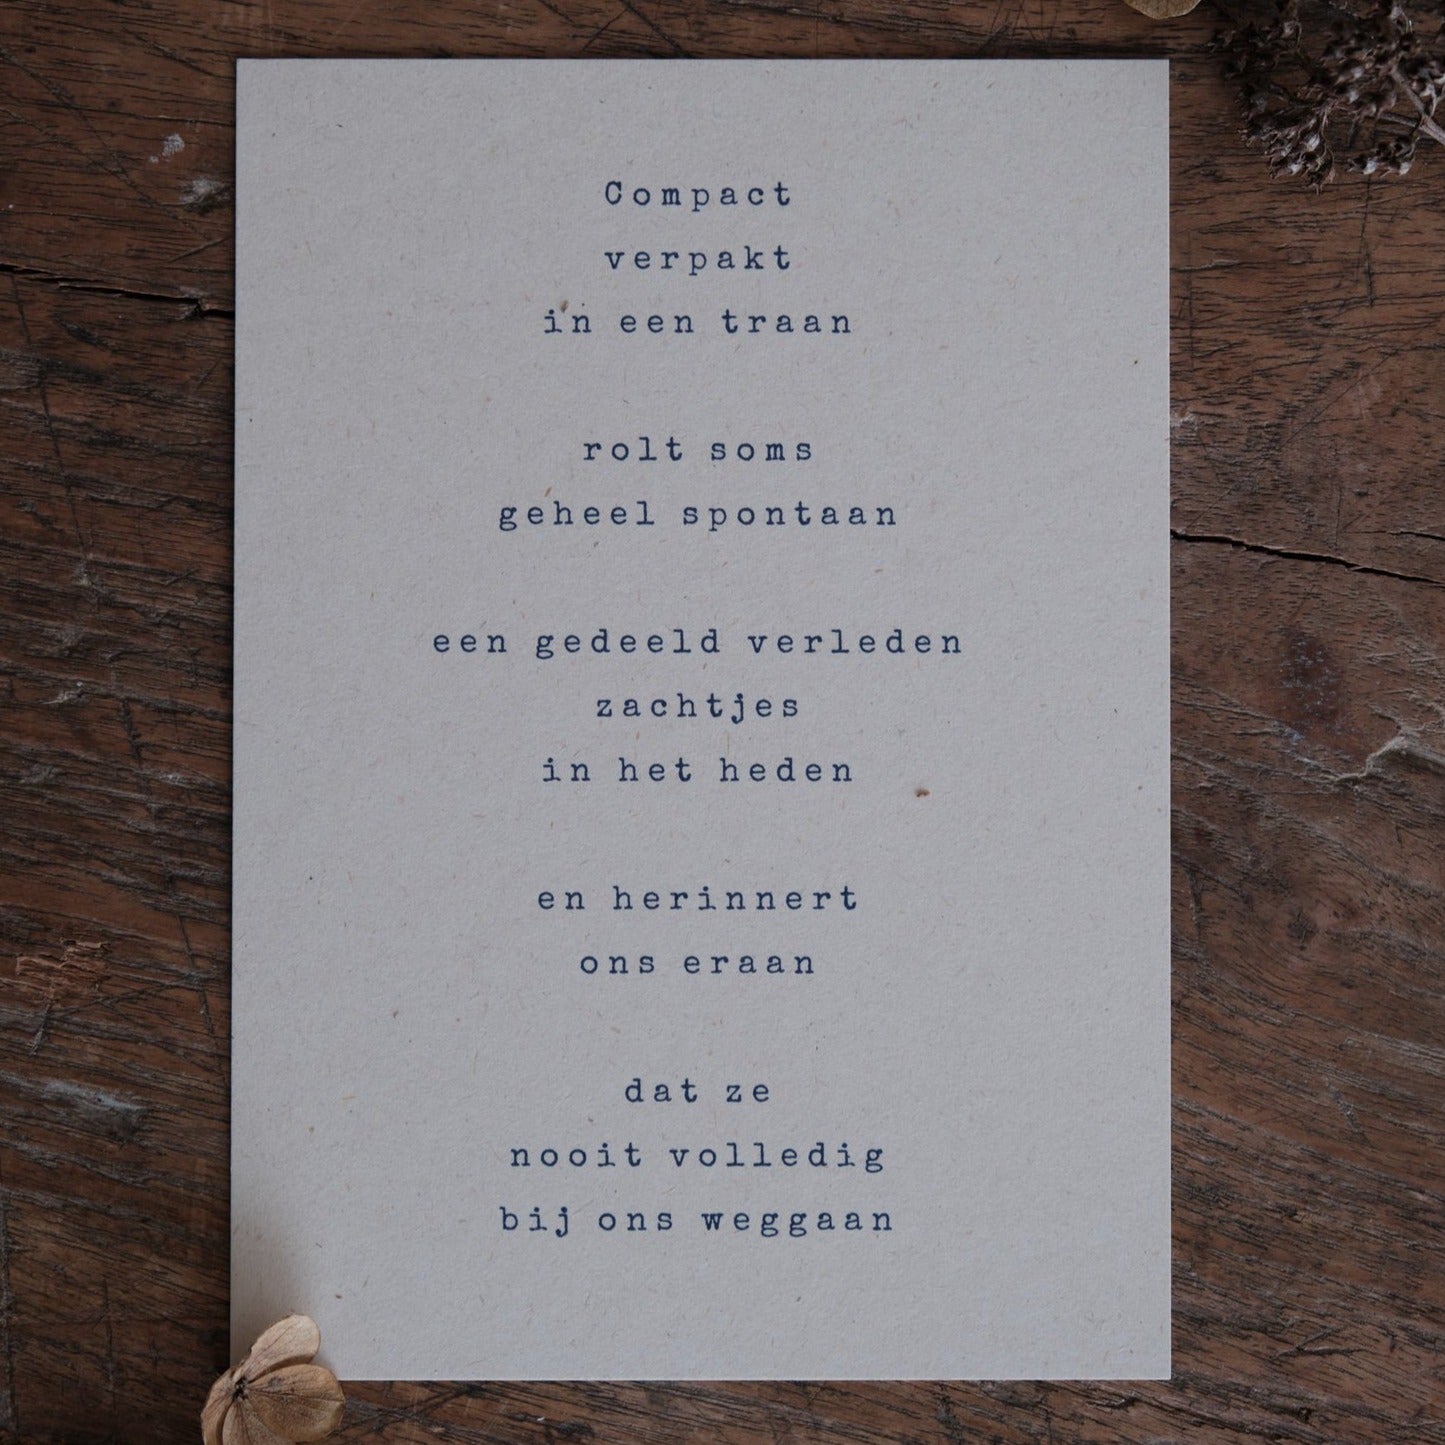 Compact
verpakt
in een traan
rolt soms
geheel spontaan
een gedeeld verleden
zachtjes
in het heden
en herinnert
ons eraan
dat ze
nooit volledig
bij ons weggaan